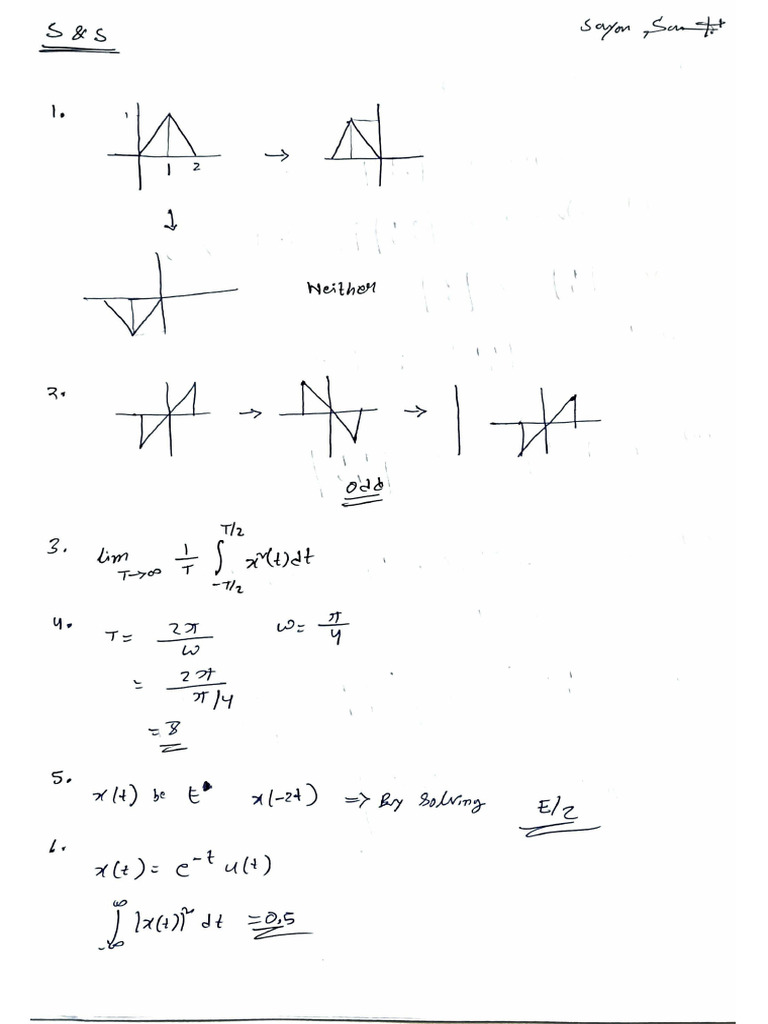 S & S
Sayon
1.
1
1 2
→
→
↓
Neither
2.
→ →
Odd
3. lim T→∞ 1/T ∫ -T/2 T/2 x²(t)dt
4. T = 2π/ω ω = π/4
= 2π/π/4
= 8
5. x(t) be E x(-2t) ⇒ By Solving E/2
6.
x(t) = e^-t u(t)
∫ -∞ ∞ |x(t)|² dt = 0.5